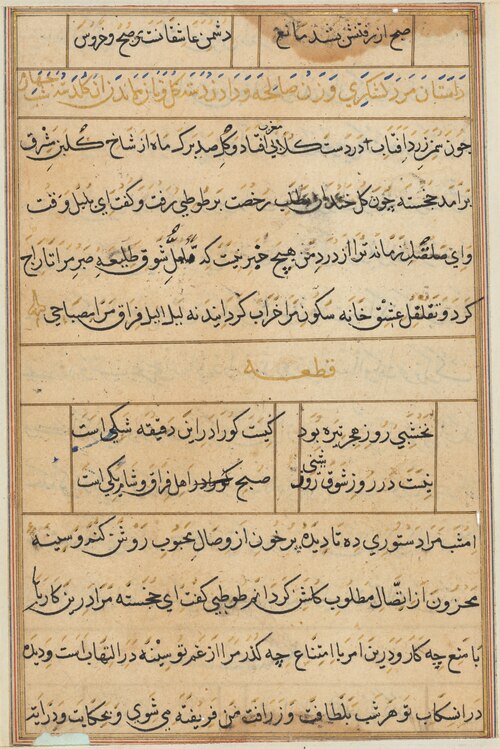 صبح از رفتنش نشد مانع دشمن عاشقانست صبح و خروس
داستان مرد لشکری و زن صالحه و دادن دسته گل و تازه ماندن آن گلدسته
چون ترنج زرد آفتاب در دست کلابی مغرب افتاد و گل صد برک ماه از شاخ گلبن مشرق
برآمد خجسته چون گل خندان بطلب رخصت بر طوطی رفت و گفت ای بلبل وقت
و ای صلصل زمانه ترا از درد من هیچ خبر نیست که شوق طلیعه صبر مرا تاراج
کرد و تقلقل عشق خانه سکون مرا خراب گردانید نه لیل فراق مرا صباحی
قطعه
نخشبی روز هجر تیره بود کیست کورا درین دقیقه شکی است
نیست در روز شوق روشنی صبح اهل فراق و شام یکی است
امشب مرا دستوری ده تا دیده پر خون از وصال محبوب روشن کنم و سینه
محزون از اتصال مطلوب گلشن گردانم طوطی گفت ای خجسته مرا درین کار با
با منع چه کار و درین امر با امتناع چه گذر مرا از غم تو سینه در التهاب است و دیده
در انسکاب تو هر شب بلطافت و زرافت من فریفته می شوی و بحکایت و درایت